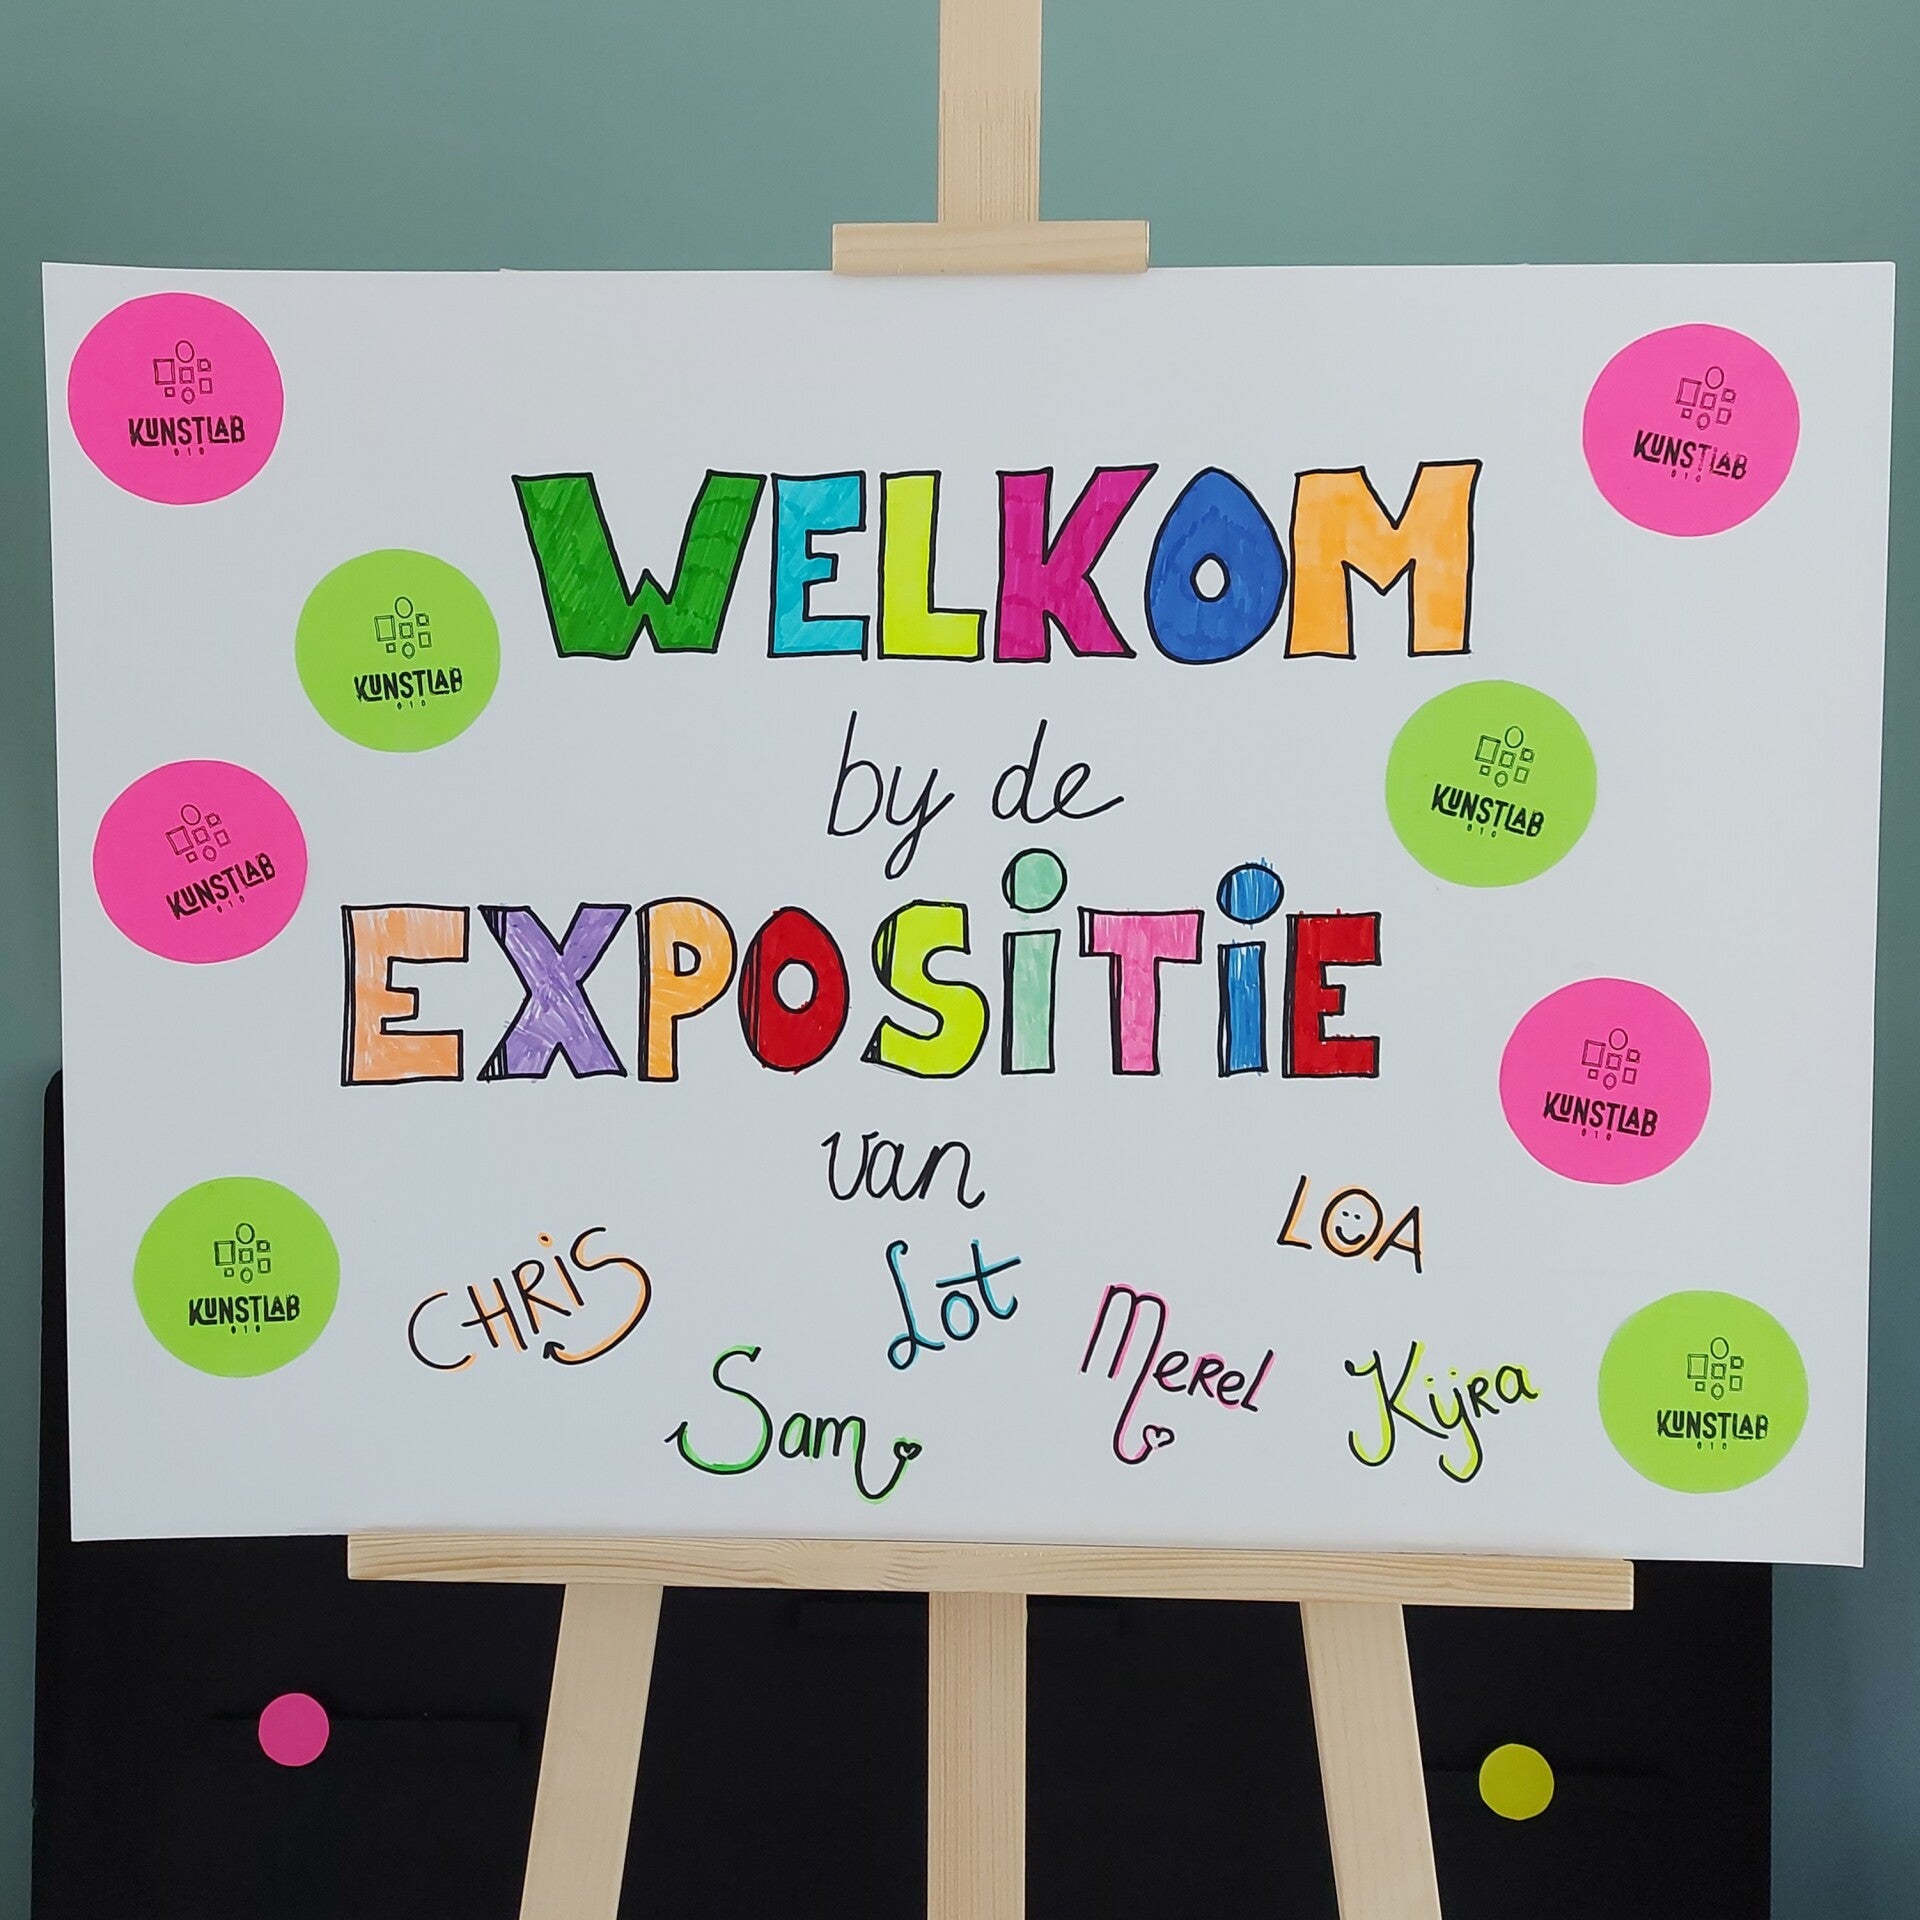 KUNSTLAB
010
KUNSTLAB
010
WELKOM
KUNSTLAB
010
by de
KUNSTLAB
010
KUNSTLAB
010
EXPOSiTiE
KUNSTLAB
010
van
KUNSTLAB
010
LOA
CHRiS
Lot
Merel
Sam
Kijra
KUNSTLAB
010